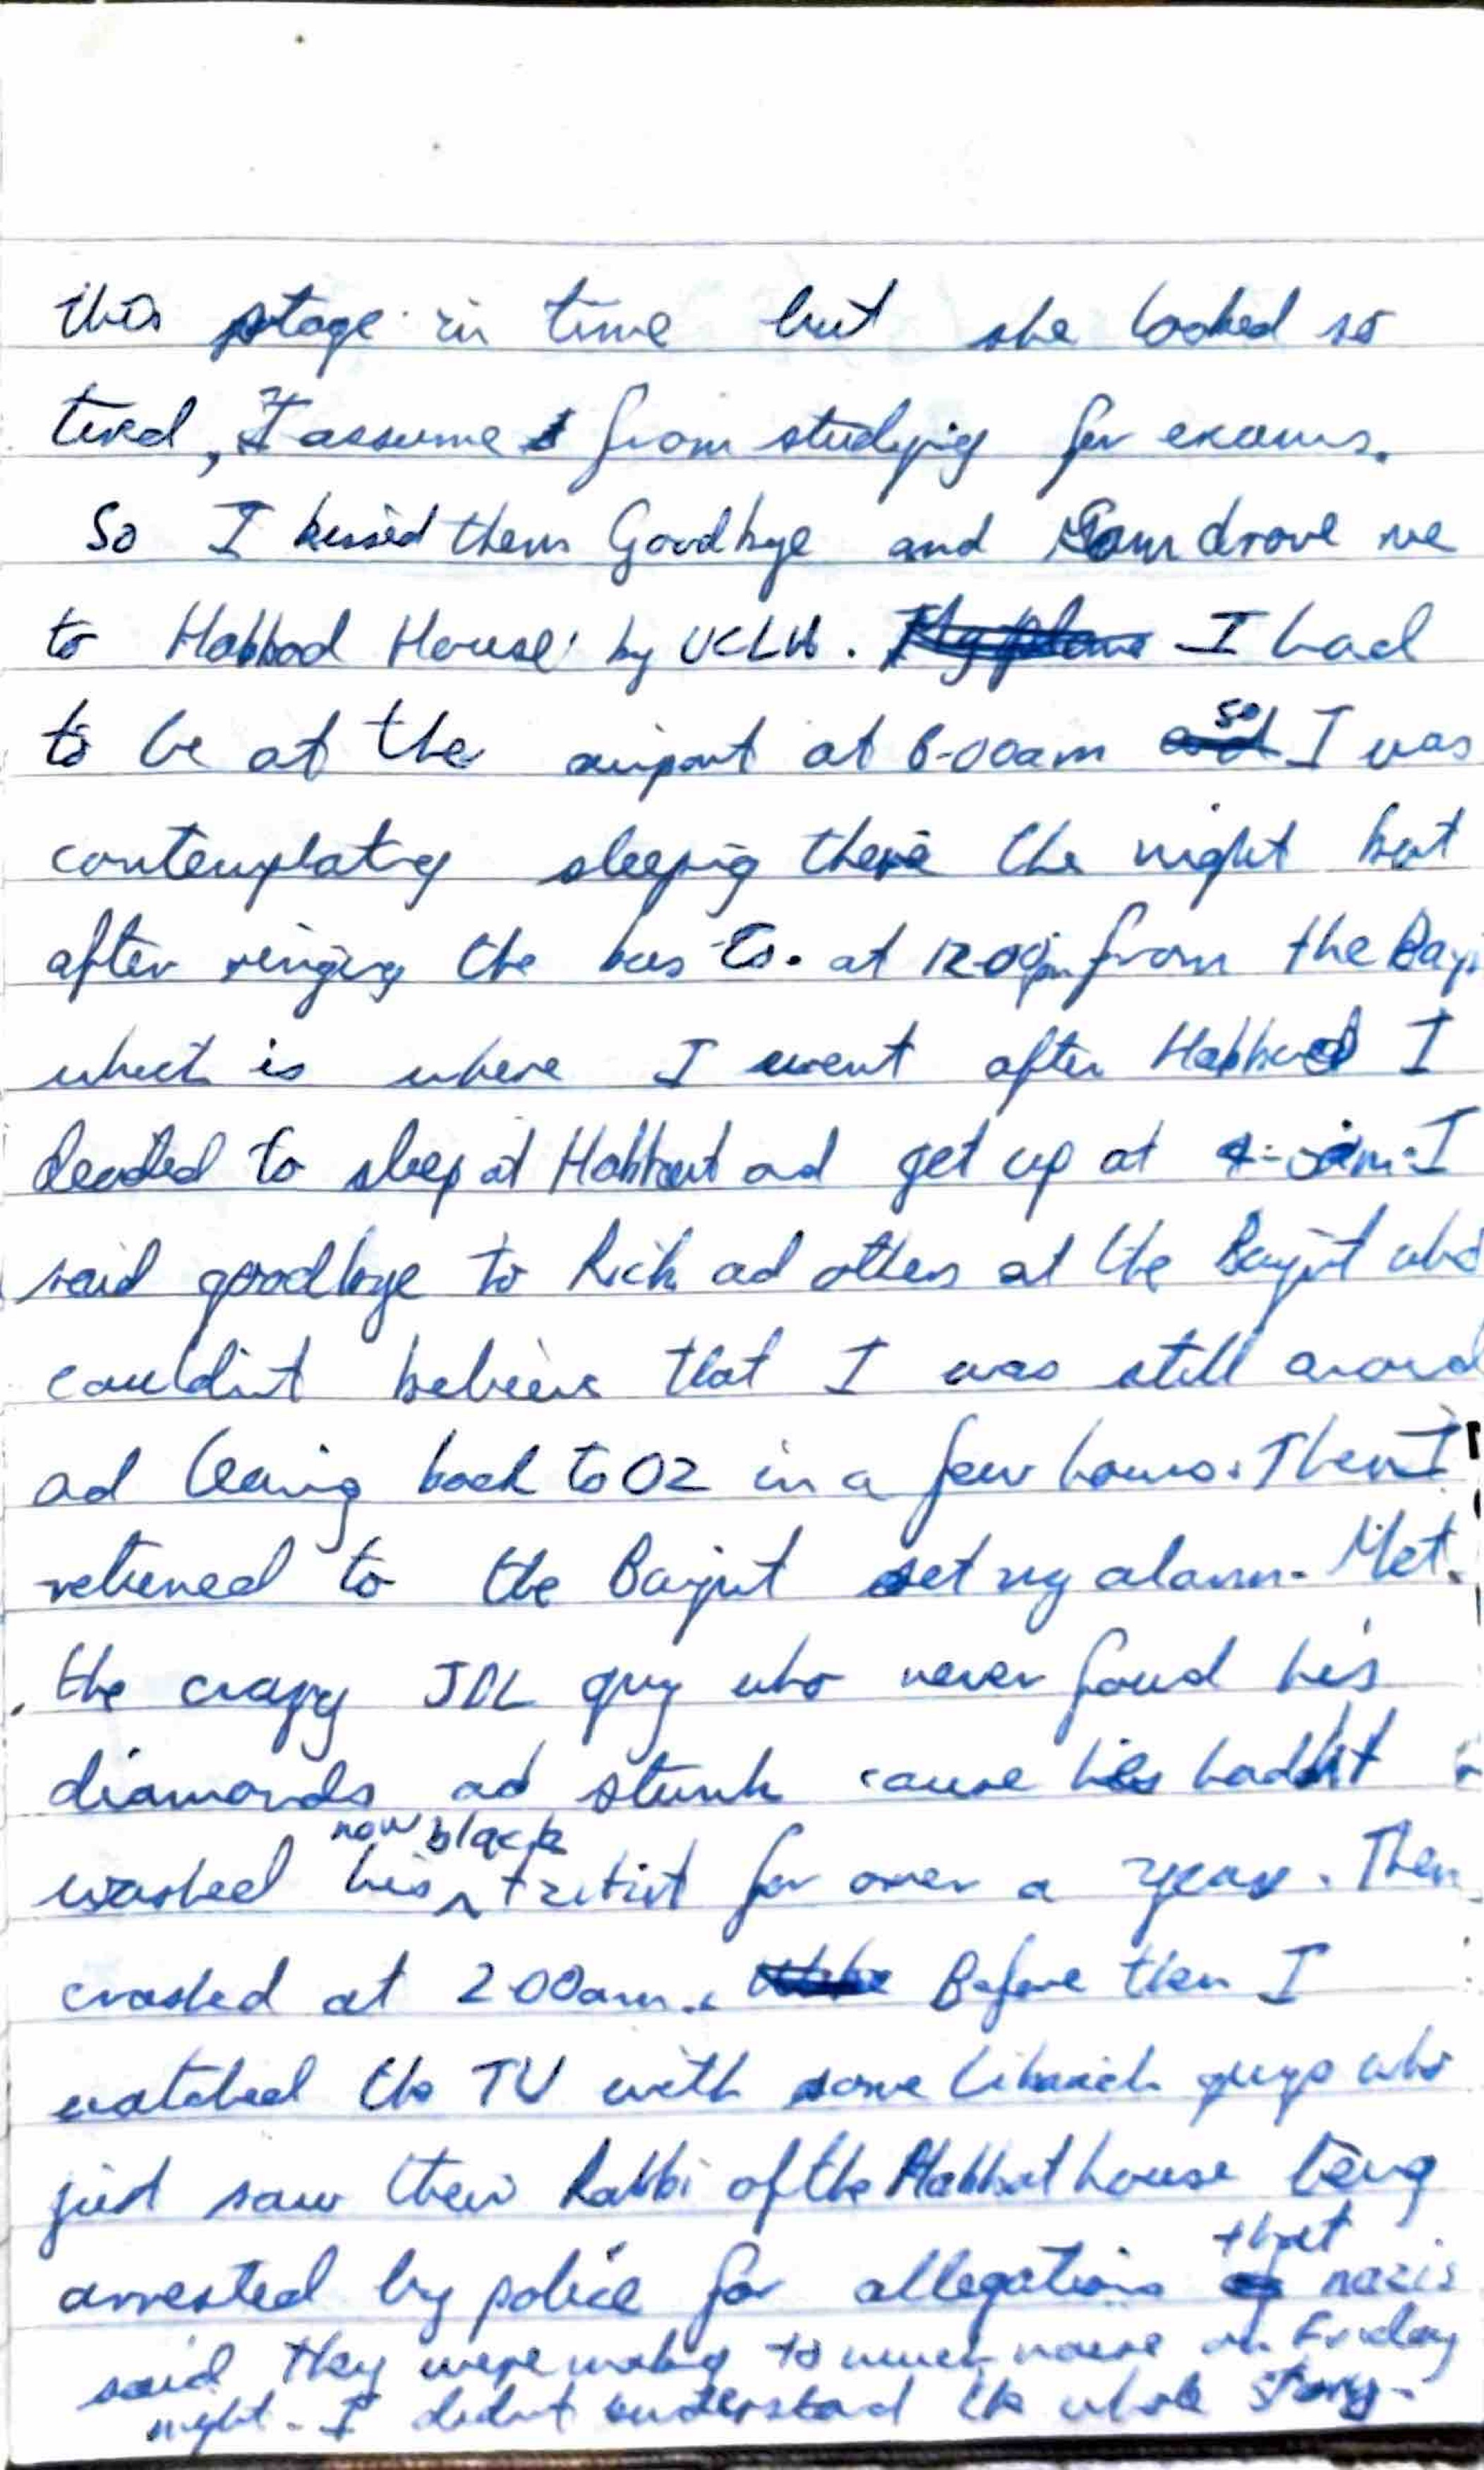 this stage in time but she looked so
tired, I assume from studying for exams.
So I kissed them Goodbye and drove me
to Habbad House by UCLA. My plane I had
to be at the airport at 6-00am so I was
contemplatig sleepig there the night but
after ringing the bus Co. at 12-00 from the Bay
which is where I went after Habbad I
decided to sleep at Habbad ad get up at I
said goodbye to Rich ad others at the Bayit who
couldn't believe that I was still aroud
ad leaving back to OZ in a few hours. Then I
returned to the Bayit set my alarm. Met
the crazy JDL guy who never foud his
diamonds ad stunk 'cause he hadn't
washed his now black t-shirt for over a year. Then
crashed at 2-00am. Before then I
watched the TV with some guys who
just saw their Rabbi of the Habbat house being
arrested by police for allegations that nazis
said they were makig to much noise on Friday
night. I didnt understand the whole story.